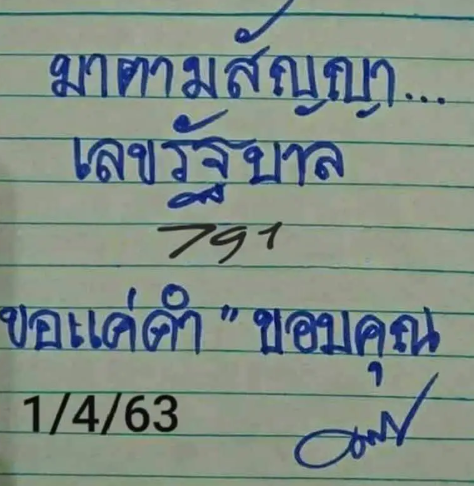 มาตามสัญญา...
เลขรัฐบาล
791
ขอแค่คำ " ขอบคุณ
1/4/63